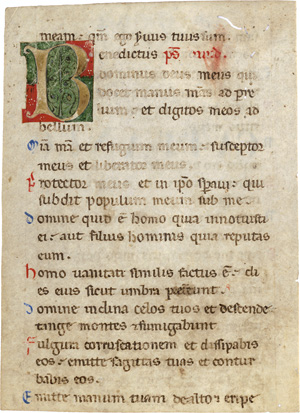 meam: qm̄ ego s̄uus tuus sum.
Benedictus p̄s
dominus deus meus qui
docet manus mās ad pre
lium: et digitos meos ad
bellum.
Mīa mā et refugium meum: susceptor
meus et liberator meus.
Protector meus et in ip̄o sp̄aui: qui
subdit populum meum sub me.
Domine quid ē homo quia innotuisti
ei: aut filius hominis quia reputas
eum.
Homo uanitati similis factus ē: di
es eius sicut umbra p̄tereunt.
Domine inclina celos tuos et descende
tange montes et fumigabunt.
Fulgura coruscationem et dissipabis
eos: emitte sagittas tuas et contur
babis eos.
Emitte manum tuam de alto: eripe